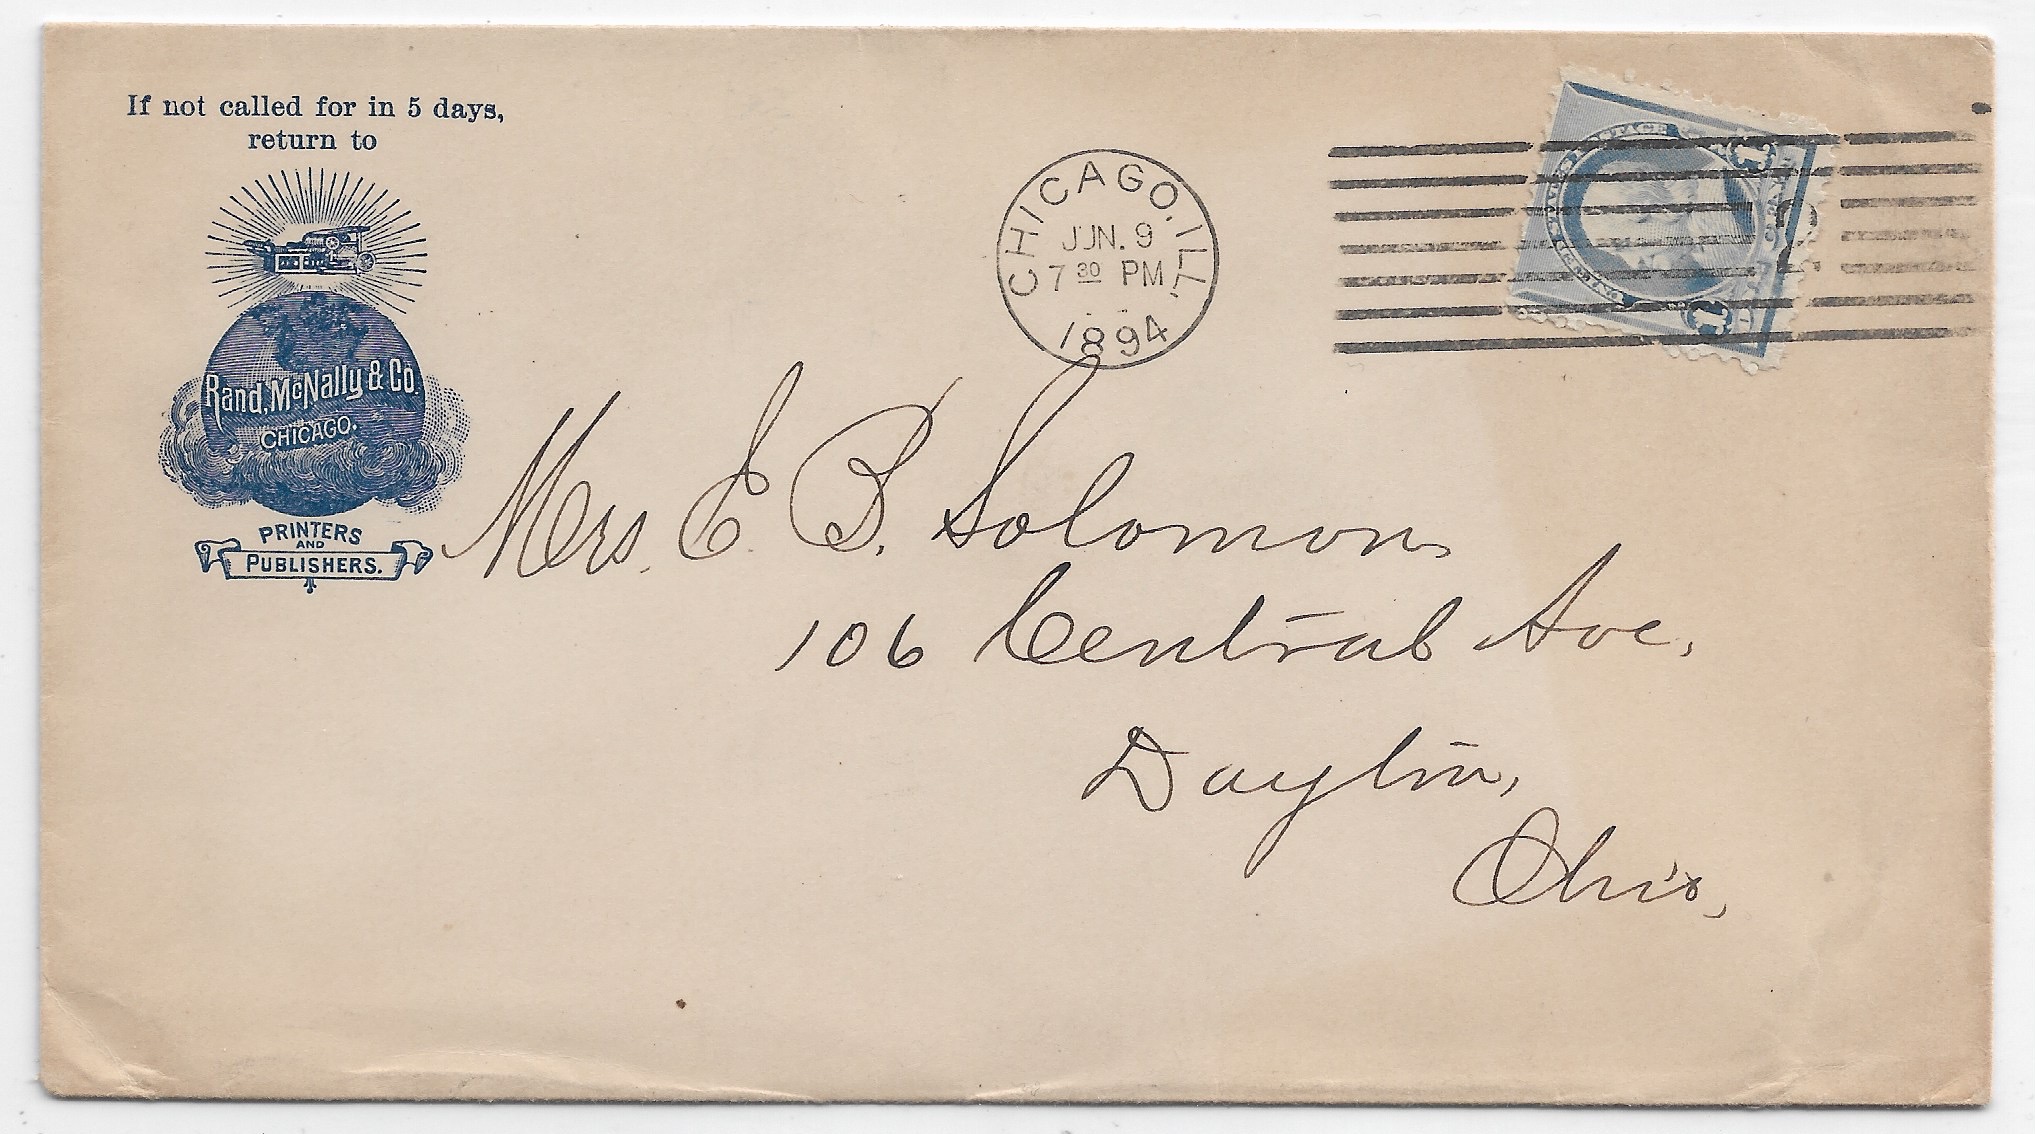 If not called for in 5 days,
return to
Rand, McNally & Co.
CHICAGO.
PRINTERS
AND
PUBLISHERS.
CHICAGO, ILL.
JUN. 9
7 30 PM
1894
2
1
1
Mrs. E. B. Solomon
106 Central Ave.
Dayton,
Ohio,